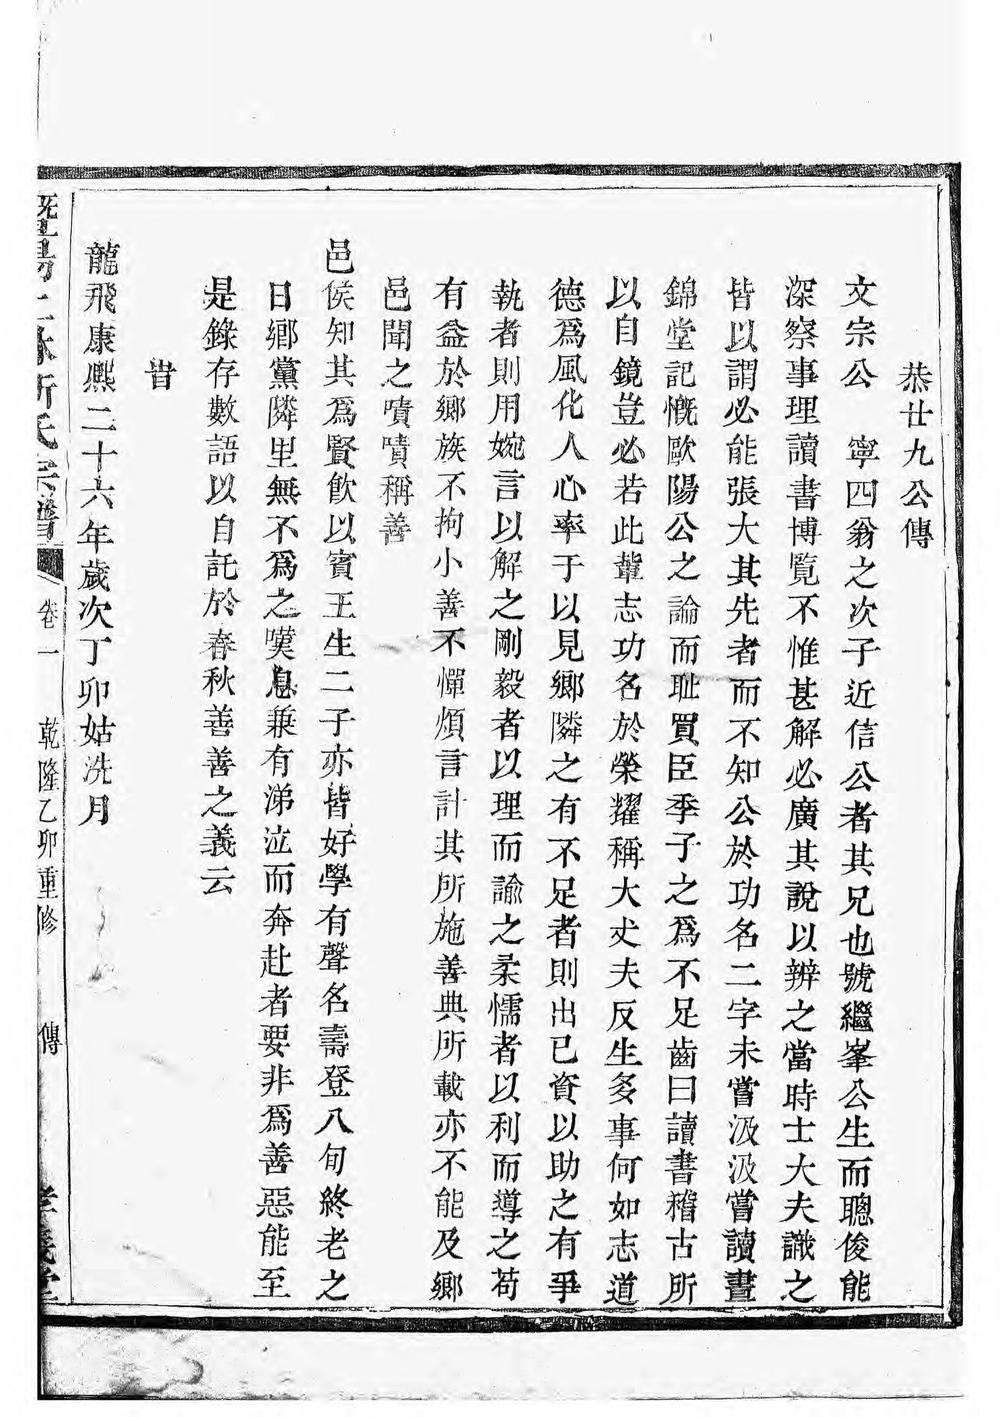 恭廿九公傳
文宗公　寧四翁之次子近信公者其兄也號繼峯公生而聰俊能
深察事理讀書博覽不惟甚解必廣其說以辨之當時士大夫識之
皆以謂必能張大其先者而不知公於功名二字未嘗汲汲嘗讀晝
錦堂記慨歐陽公之論而耻買臣季子之爲不足齒曰讀書稽古所
以自鏡豈必若此輩志功名於榮耀稱大丈夫反生多事何如志道
德爲風化人心率于以見鄉隣之有不足者則出已資以助之有爭
執者則用婉言以解之剛毅者以理而諭之柔懦者以利而導之苟
有益於鄉族不拘小善不憚煩言計其所施善典所載亦不能及鄉
邑聞之嘖嘖稱善
邑侯知其爲賢飲以賓王生二子亦皆好學有聲名壽登八旬終老之
日鄉黨隣里無不爲之嘆息棄有涕泣而奔赴者要非爲善惡能至
是錄存數語以自託於春秋善善之義云
旹
龍飛康熙二十六年歲次丁卯姑洗月
暨陽上 斯氏宗譜　卷一　乾隆乙卯重修　傳　孝義堂